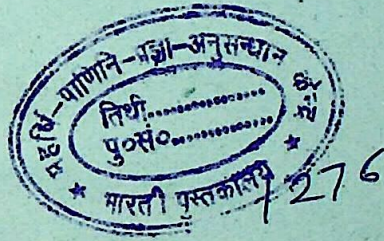 महर्षि-पाणिनि-प्रज्ञा-अनुसन्धान
तिथी..............
पु०सं०..............
★ भारती पुस्तकालय ★
1276